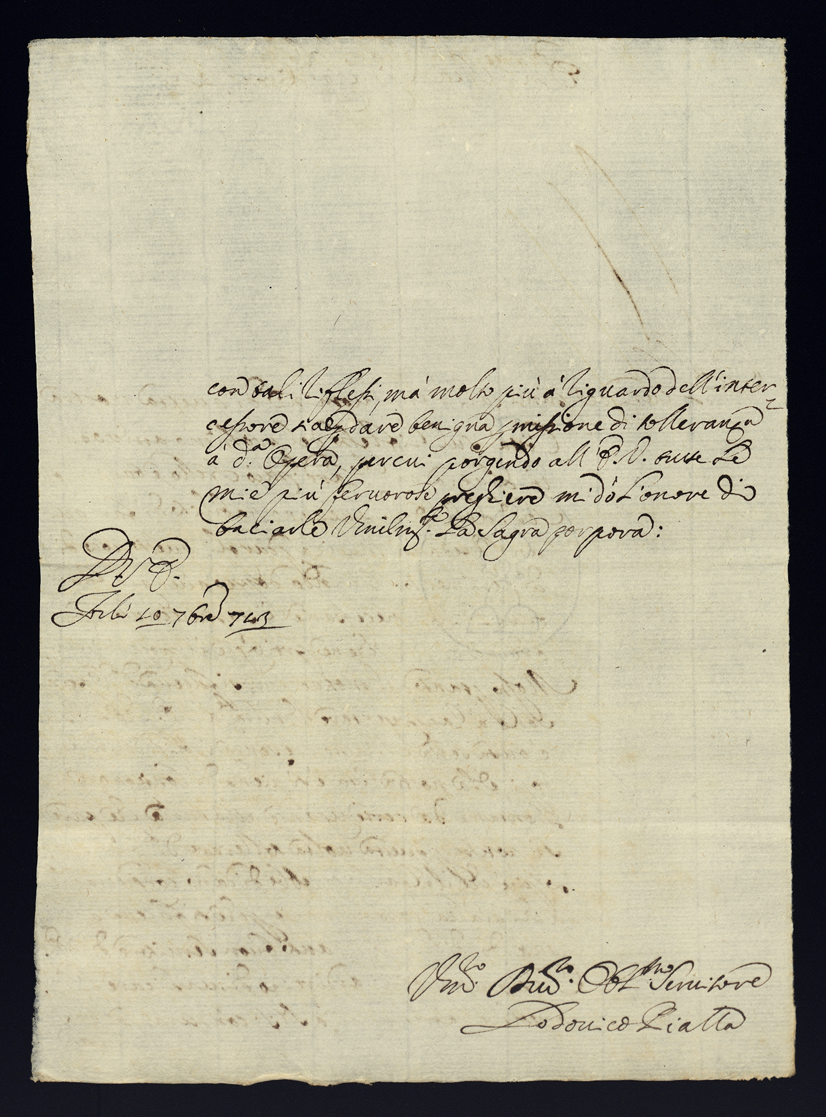 con tali riflessi, mà molto più a' riguardo dell'inter-
cessore si a dare benigna pmissione di tolleranza
à d.ª Opera, per cui porgendo all' E. V. tutte le
mie più fervorose preghiere mi dò l'onore di
baciarle Vmilm.te la Sagra porpora:
Forlì 10 7bre 743
Vm.o Div.mo Obl.mo Servitore
Lodovico Piatta